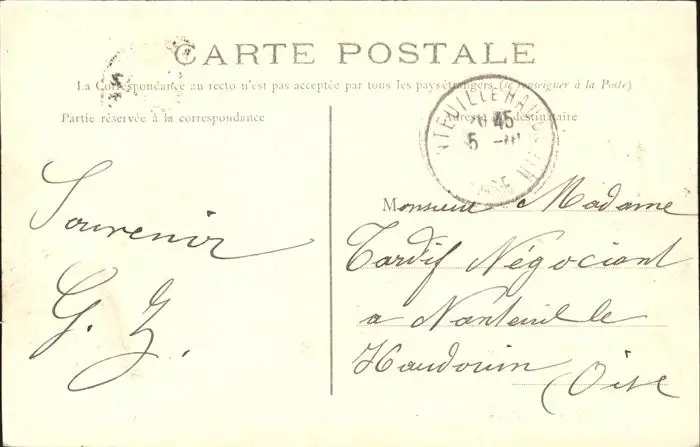 CARTE POSTALE
La Correspondance au recto n'est pas acceptée par tous les pays étrangers (se renseigner à la Poste)
Partie réservée à la correspondance
Adresse du destinataire
NTEUIL LE HAUD
45
5
OISE
Souvenir
G. Z.
Monsieur Madame
Tardif Négociant
a Nanteuil le
Haudouin Oise